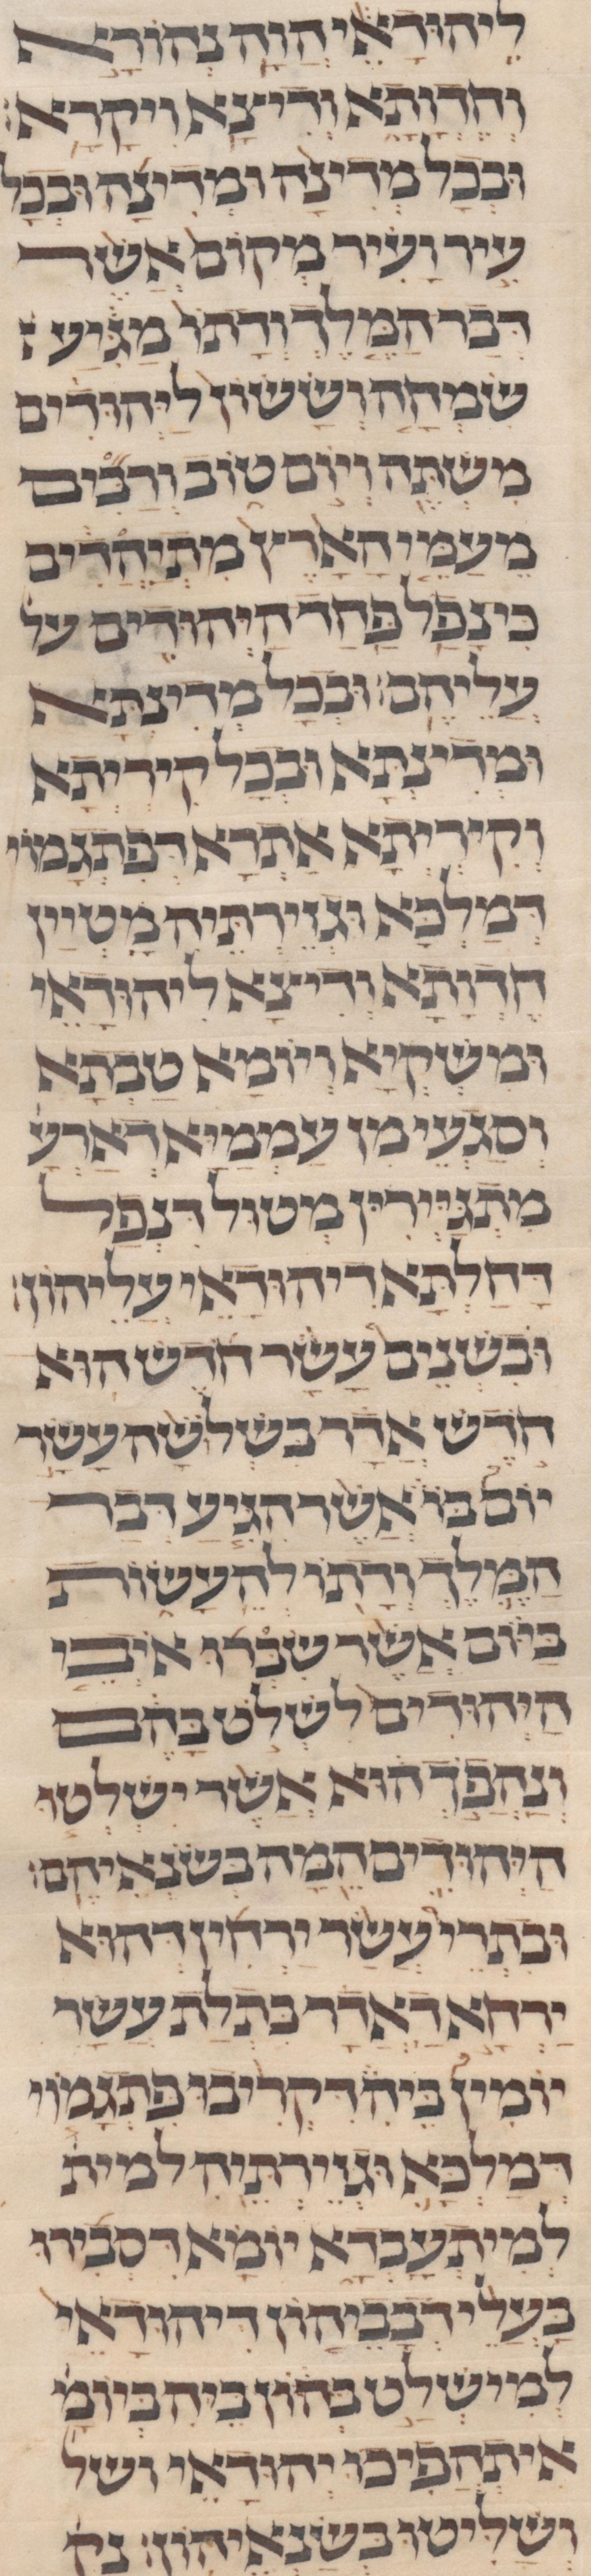 לִיהוּדָאֵי הֲוָה נְהוֹרָא
וְחֶדְוְתָא וְדִיצָא וִיקָרָא׃
וּבְכָל מְדִינָה וּמְדִינָה וּבְכָל
עִיר וָעִיר מְקוֹם אֲשֶׁר
דְּבַר הַמֶּלֶךְ וְדָתוֹ מַגִּיעַ
שִׂמְחָה וְשָׂשׂוֹן לַיְּהוּדִים
מִשְׁתֶּה וְיוֹם טוֹב וְרַבִּים
מֵעַמֵּי הָאָרֶץ מִתְיַהֲדִים
כִּי נָפַל פַּחַד הַיְּהוּדִים על
עֲלֵיהֶם׃ וּבְכָל מְדִינְתָּא
וּמְדִינְתָּא וּבְכָל קִירְיְתָא
וְקִירְיְתָא אַתְרָא דְּפִתְגָמוֹי
דְּמַלְכָּא וּגְזֵירְתֵיהּ מָטְיָין
חֶדְוְתָא וְדִיצָא לִיהוּדָאֵי
וּמִשְׁקְיָא וְיוֹמָא טַבְתָּא
וְסַגְעֵי מִן עַמְמַיָּא דְאַרְעָ
מִתְגַּיְּירִין מְטוּל דִּנְפַל
דַּחַלְתָּא דִיהוּדָאֵי עֲלֵיהוֹן׃
וּבִשְׁנֵים עָשָׂר חֹדֶשׁ הוּא
חֹדֶשׁ אֲדָר בִּשְׁלֹשָׁה עָשָׂר
יוֹם בּוֹ אֲשֶׁר הִגִּיעַ דְּבַר
הַמֶּלֶךְ וְדָתוֹ לְהֵעָשׂוֹת
בַּיּוֹם אֲשֶׁר שִׂבְּרוּ אֹיְבֵי
הַיְּהוּדִים לִשְׁלוֹט בָּהֶם
וְנַהֲפֹךְ הוּא אֲשֶׁר יִשְׁלְטוּ
הַיְּהוּדִים הֵמָּה בְּשֹׂנְאֵיהֶם׃
וּבִתְרֵי עֲשַׂר יַרְחִין דְּהוּא
יַרְחָא דַאֲדָר בִּתְלָת עֲשַׂר
יוֹמִין בֵּיהּ דִּקְרִיבוּ פִּתְגָמוֹי
דְּמַלְכָּא וּגְזֵירְתֵּיהּ למית
לְמִיתְעֲבָדָא יוֹמָא דִּסְבִירוּ
בַּעֲלֵי דְבָבֵיהוֹן דִּיהוּדָאֵי
לְמִישְׁלַט בְּהוֹן בֵּיהּ בְּיוֹמָ
אִיתְהֲפִיכוּ יְהוּדָאֵי ושל
וּשְׁלִיטוּ בְּשָׂנְאֵיהוֹן׃ נק